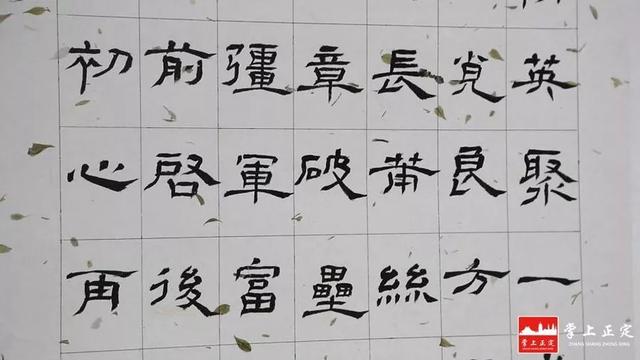 英聚一
覓良方
長絲
章破壘
彊軍富
前啓後
初心再
掌上正定
ZHANG SHANG ZHENG DING